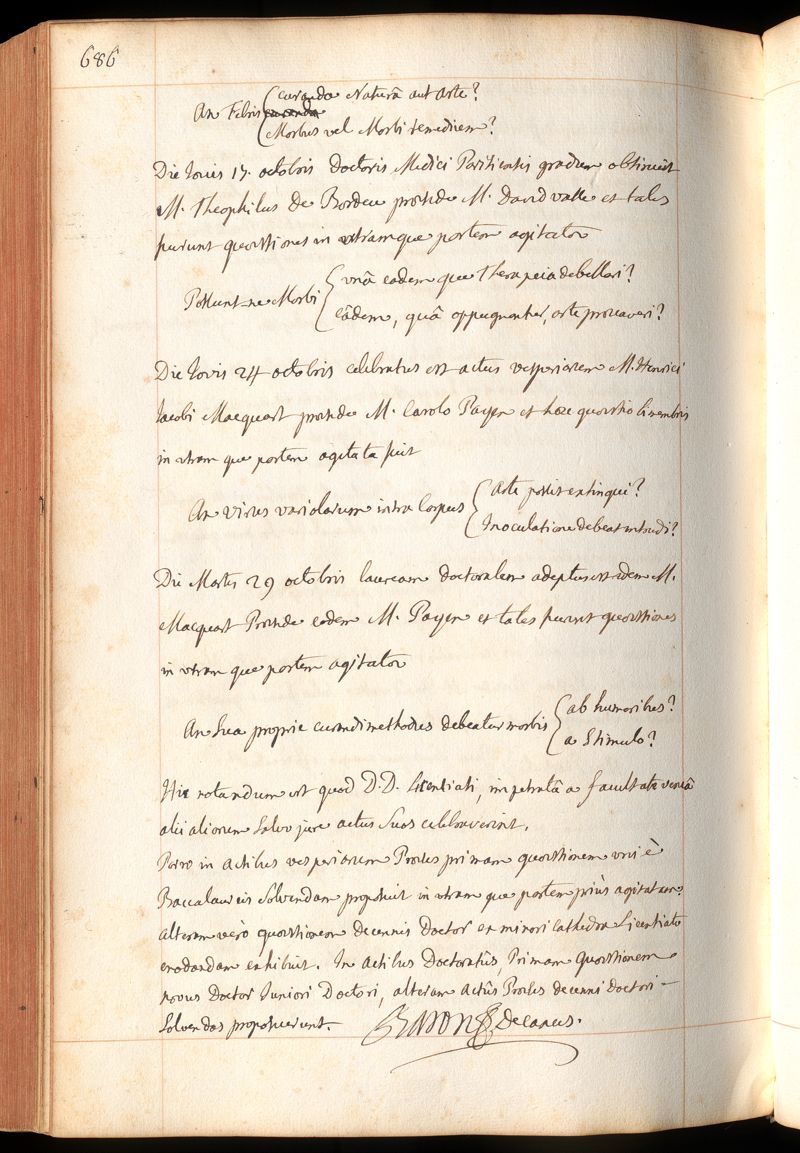 686
An Febris { curanda Naturâ aut Arte?
curanda
Morbus vel Morbi remedium?
Die Jovis 17. octobris doctoris Medici Parisiensis gradum obtinuit
M. Theophilus De Bordeu præside M. David Vasse et tales
fuerunt quæstiones in utramque partem agitatæ
Possunt-ne Morbi { unâ eademque Therapeia debellari?
eâdem, quâ oppugnantur, arte præcaveri?
Die Jovis 24 octobris celebratus est actus vesperiarum M. Henrici
Jacobi Macquart præside M. Carolo Payen et hæc quæstio bimembris
in utramque partem agitata fuit
An virus variolarum intra Corpus { Arte possit extingui?
Inoculatione debeat intrudi?
Die Martis 29 octobris lauream doctoralem adeptus est idem M.
Macquart Præside eodem M. Payen et tales fuerunt quæstiones
in utramque partem agitatæ
An sua proprie curandi methodus debeatur morbis { ab humoribus?
a Stimulo?
Hic notandum est quod D.D. Licentiati, impetratâ a facultate veniâ
alii aliorum salvo jure actus suos celebraverint.
Porro in actibus vesperiarum Præses primam quæstionem uni è
Baccalaureis solvendam proposuit in utramque partem priùs agitatam.
alteram verò quæstionem decennis Doctor ex minori Cathedra Licentiato
enodandam exhibuit. In actibus Doctoratûs, Primam quæstionem
novus Doctor Juniori Doctori, alteram actûs Præses decenni Doctori
solvendas proposuerunt. Decanus.